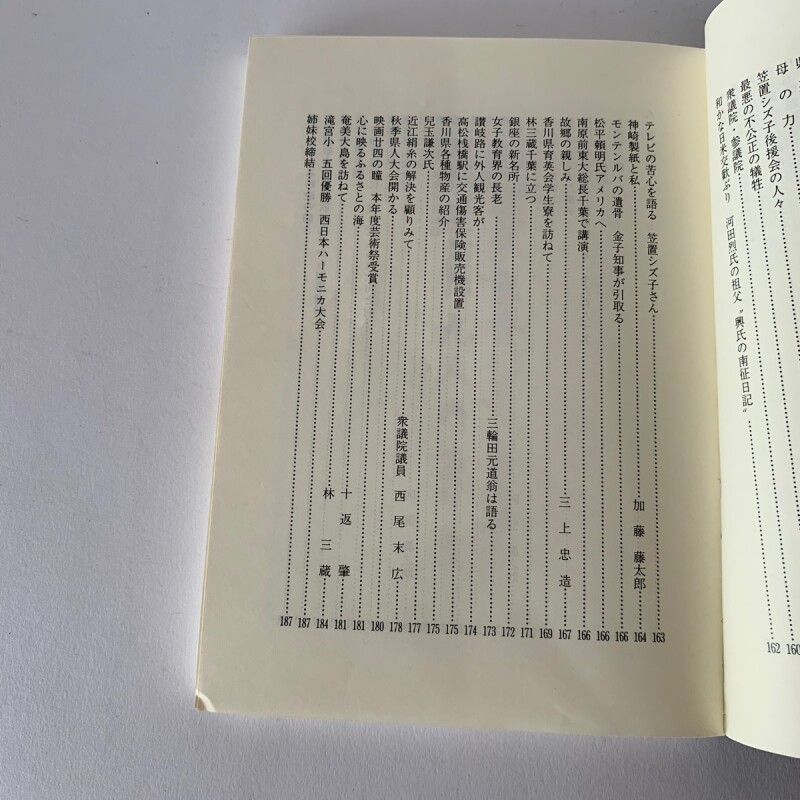 母の力 160
笠置シズ子後援会の人々
最悪の不公正の犠牲
衆議院・参議院
和かな日米交歓ぶり 河田烈氏の祖父〝興氏の南征日記〟 162
テレビの苦心を語る 笠置シズ子さん 163
神崎製紙と私 加藤藤太郎 164
モンテンルパの遺骨 金子知事が引取る 166
松平頼明氏アメリカへ 166
南原前東大総長千葉で講演 166
故郷の親しみ 三上忠造 167
香川県育英会学生寮を訪ねて 169
林三蔵千葉に立つ 171
銀座の新名所 172
女子教育界の長老 三輪田元道翁は語る 173
讃岐路に外人観光客が 174
高松桟橋駅に交通傷害保険販売機設置 175
香川県各種物産の紹介 175
児玉謙次氏 177
近江絹糸の解決を顧りみて 衆議院議員 西尾末広 178
秋季県人大会開かる 180
映画廿四の瞳 本年度芸術祭受賞 181
心に映るふるさとの海 十返肇 181
奄美大島を訪ねて 林三蔵 184
滝宮小 五回優勝 西日本ハーモニカ大会 187
姉妹校締結 187